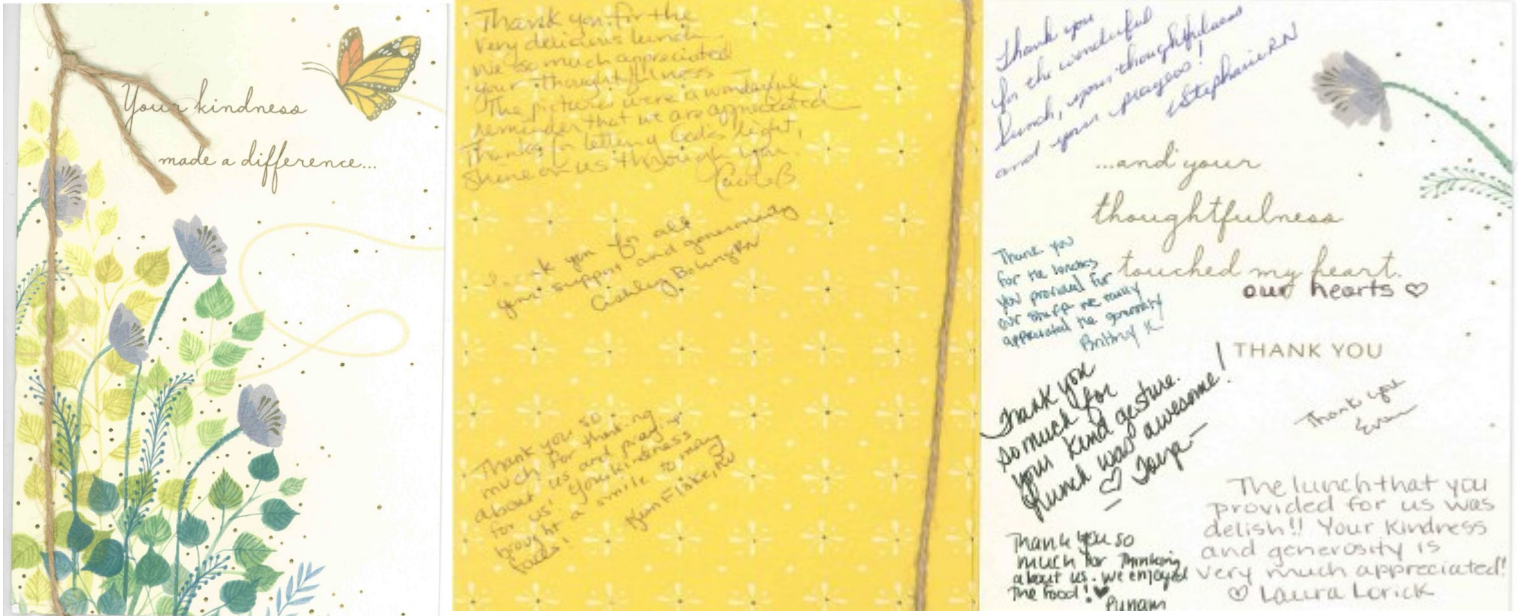 Your kindness
made a difference...
Thank you for the
very delicious lunch.
We so much appreciated
your thoughtfulness
The pictures were a wonderful
reminder that we are appreciated
Thanks for letting God's light,
shine on us through you
you for all
your support and generosity
Ashley RN
Thank you so
much for thinking
about us and praying
for us! Your kindness
brought a smile to many
faces!
Kim Fiske, RN
Thank you
for the wonderful
lunch, your thoughtfulness
and your prayers!
Stephanie RN
...and your
thoughtfulness
touched my heart.
our hearts ♡
Thank you
for the lunches
you provided for
our staff. We really
appreciated the generosity
Brittny K.
THANK YOU
Thank you
so much for
your kind gesture.
Lunch was awesome!
♡
Thank you
Evan
The lunch that you
provided for us was
delish!! Your kindness
and generosity is
very much appreciated!
♡ Laura Lorick
Thank you so
much for thinking
about us. We enjoyed
the food! ♥
Punam